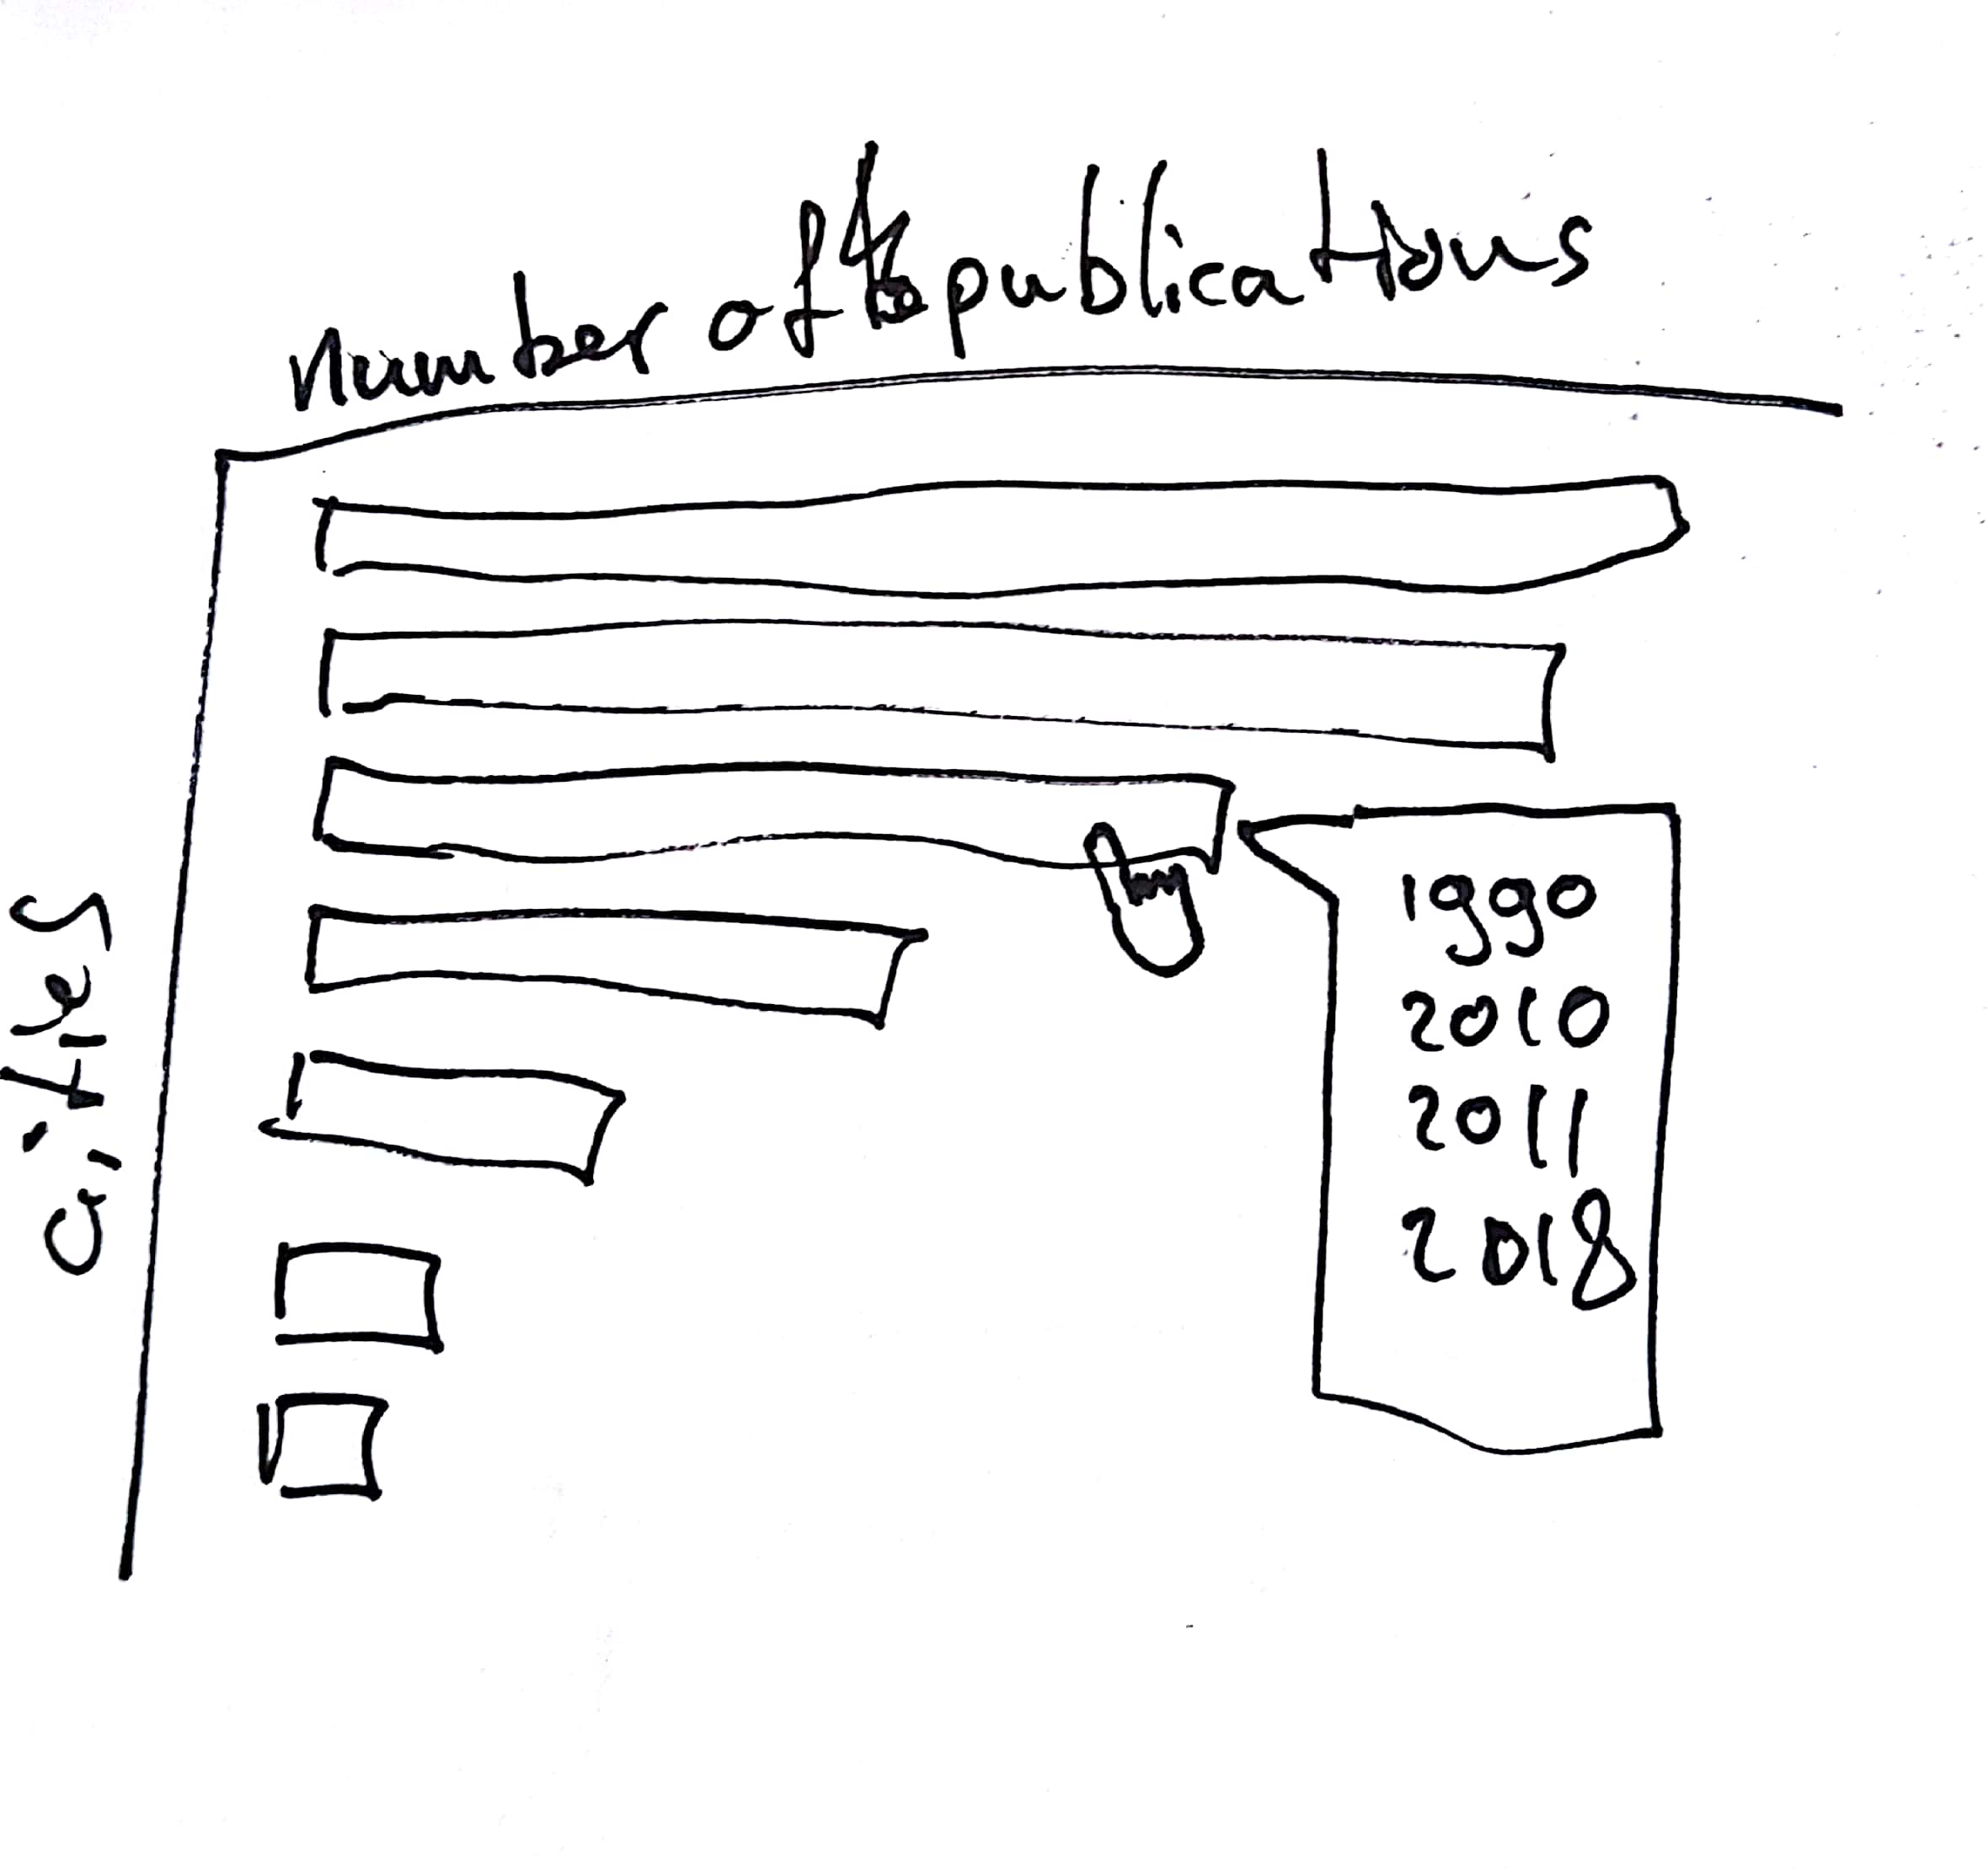 Number of publications
Cities
1990
2010
2011
2018